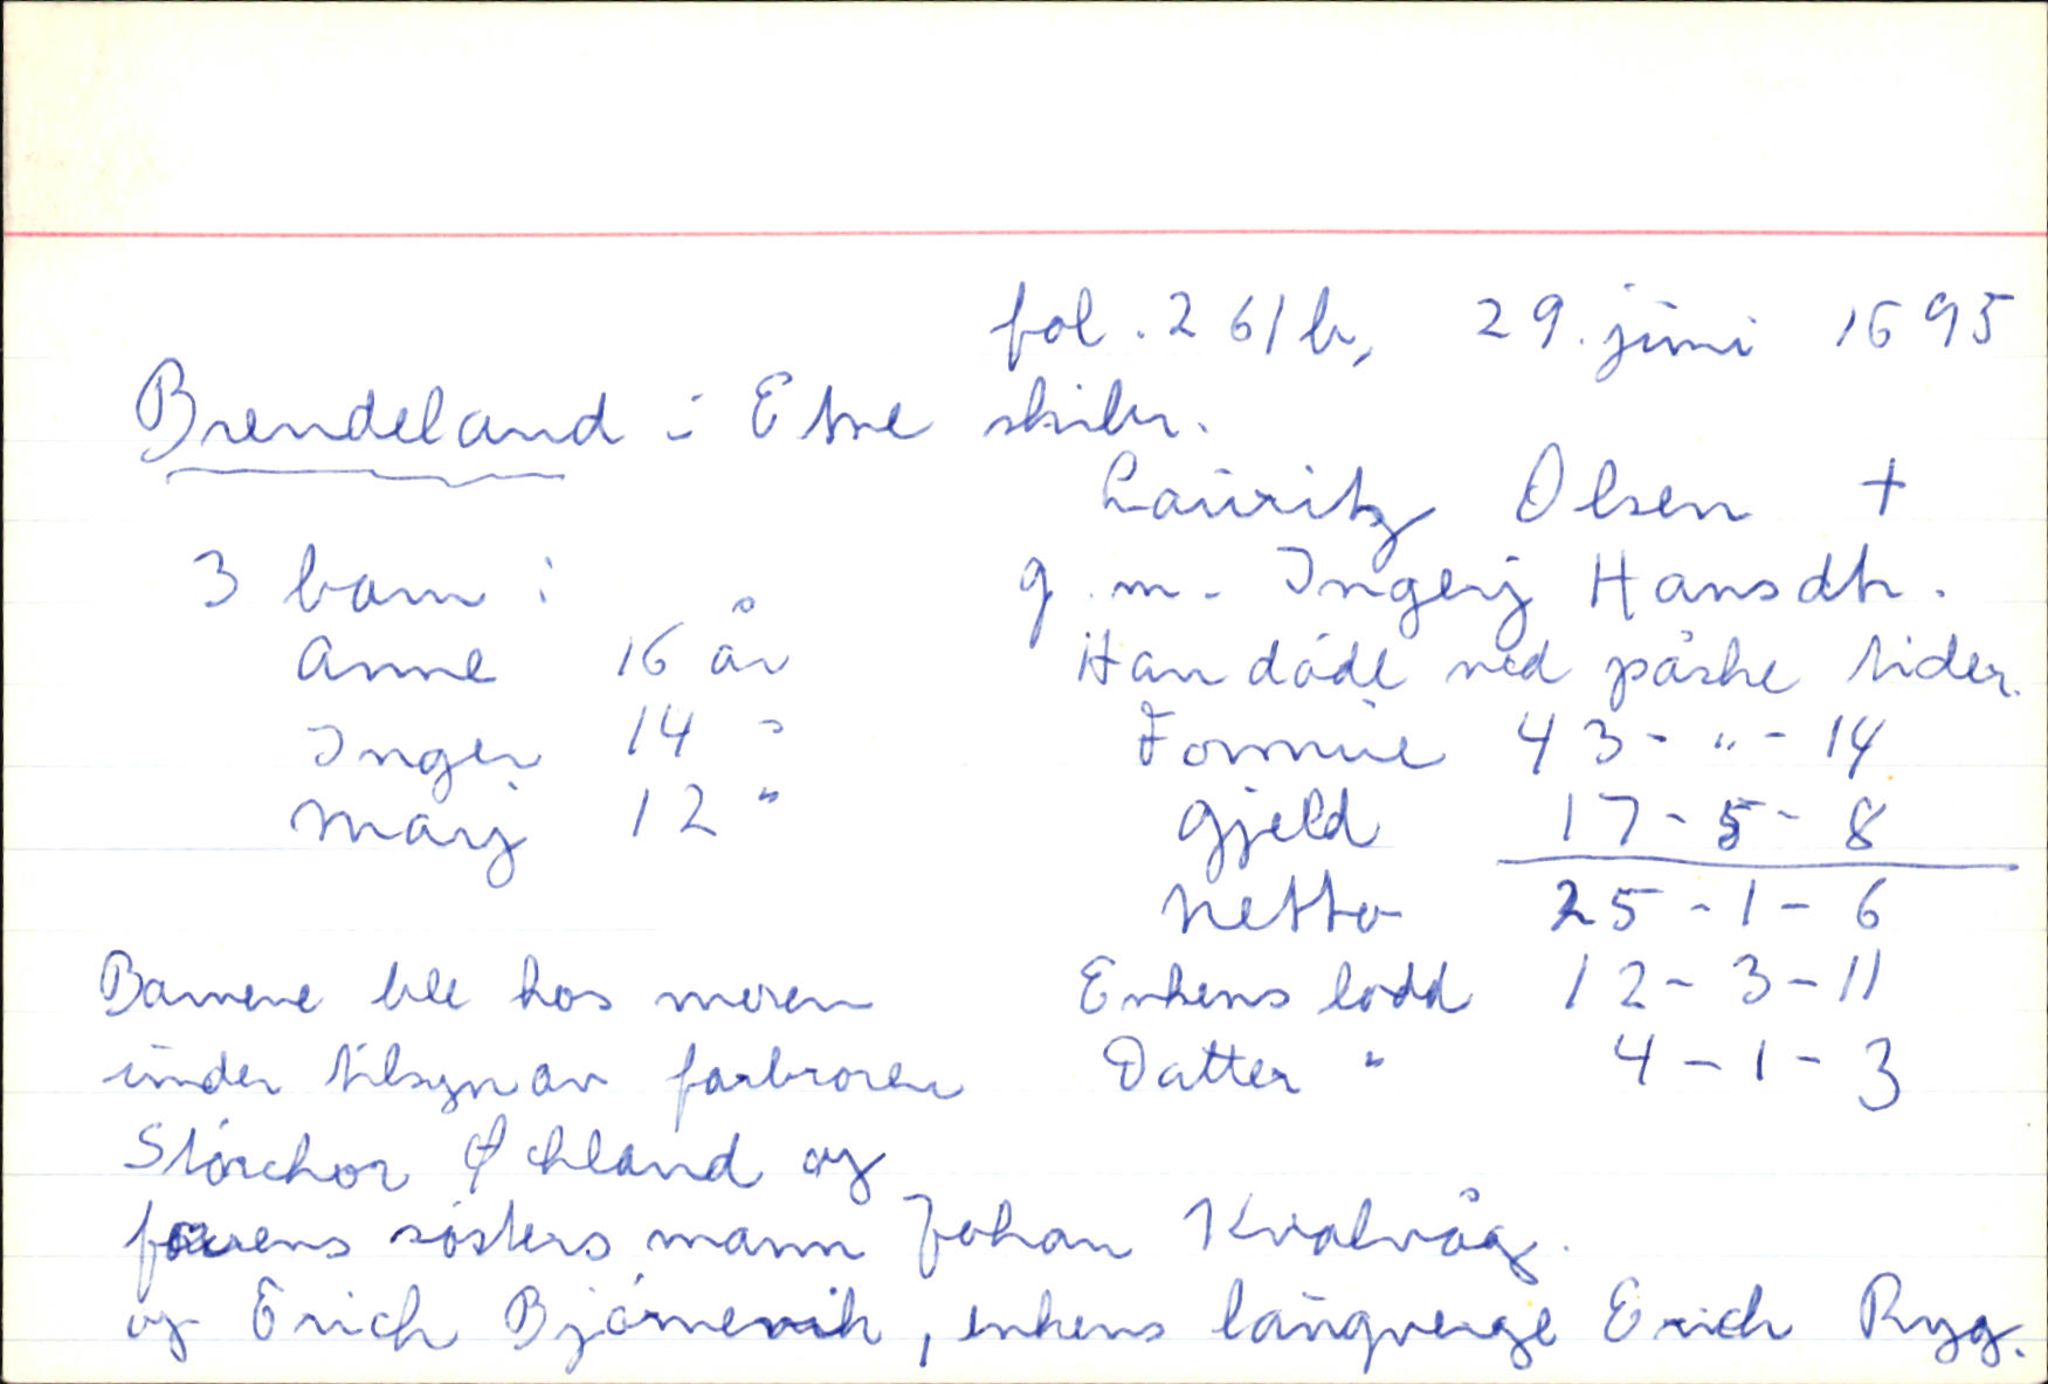 fol. 261b, 29. juni 1695
Brendeland i Etne skibr.
Lauritz Olsen +
3 barn: g.m. Ingerj Hansdtr.
Anne 16 år Han döde ved påske tider.
Inger 14 " Formue 43 - " - 14
Marj 12 " Gjeld 17 - 5 - 8
Netto 25 - 1 - 6
Barnene ble hos moren Enkens lodd 12 - 3 - 11
under tilsyn av farbroren Datter " 4 - 1 - 3
Störchor Øchland og
farens sösters mann Johan Kvalvåg.
og Erich Björnevik, enkens laugverge Erich Ryg.